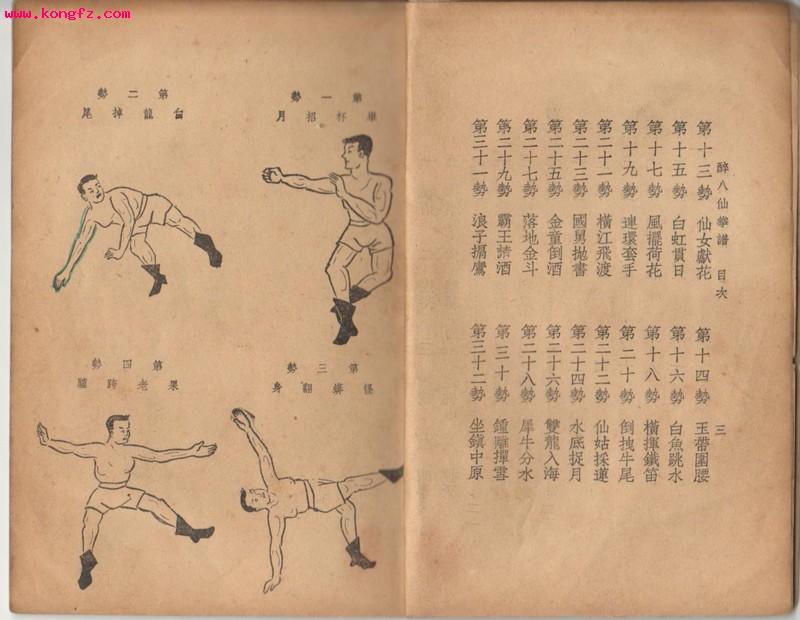 www.kongfz.com
醉八仙拳譜 目次 三
第十三勢 仙女獻花 第十四勢 玉帶圍腰
第十五勢 白虹貫日 第十六勢 白魚跳水
第十七勢 風擺荷花 第十八勢 橫揮鐵笛
第十九勢 連環套手 第二十勢 倒拽牛尾
第二十一勢 橫江飛渡 第二十二勢 仙姑採蓮
第二十三勢 國舅拋書 第二十四勢 水底捉月
第二十五勢 金童倒酒 第二十六勢 雙龍入海
第二十七勢 落地金斗 第二十八勢 犀牛分水
第二十九勢 霸王請酒 第三十勢 鍾離揮雲
第三十一勢 浪子搨鷹 第三十二勢 坐鎮中原
第一勢
舉杯招月
第二勢
白龍掉尾
第三勢
怪蟒翻身
第四勢
果老跨驢